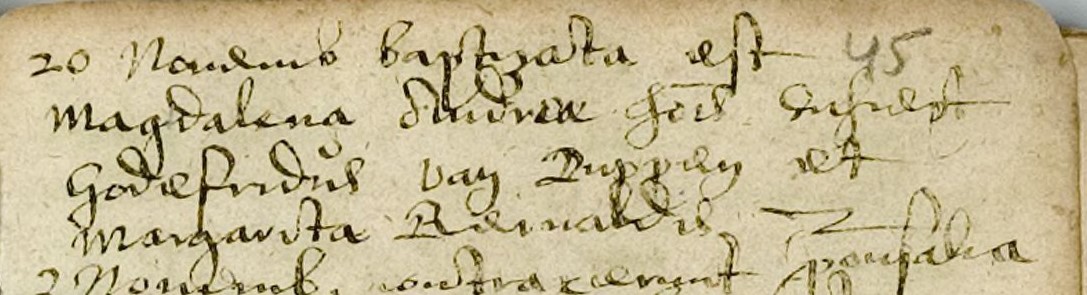 20 Novemb baptizata est 45
Magdalena Andreæ
Godefridus van Puppen et
Margarita Reinaldis
2 Novemb. contraxerunt sponsalia